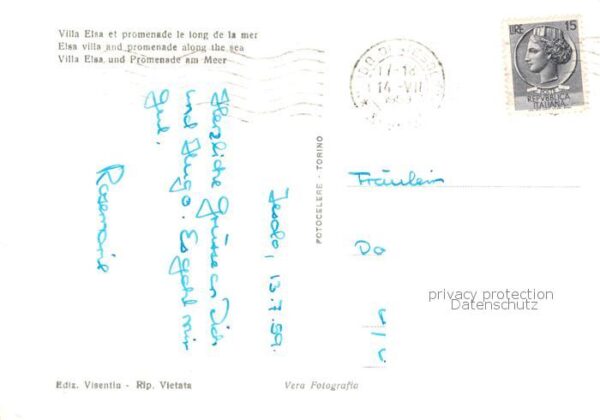 Villa Elsa et promenade le long de la mer
Elsa villa and promenade along the sea
Villa Elsa und Promenade am Meer
LIRE 15
POSTE
REPVBBLICA
ITALIANA
17-18
14-VII
Jesolo, 13.7.59.
Herzliche Grüsse an Dich
und Hugo. Es geht mir
gut.
Rosemarie
FOTOCELERE - TORINO
Fräulein
privacy protection
Datenschutz
Ediz. Visentin - Rip. Vietata
Vera Fotografia